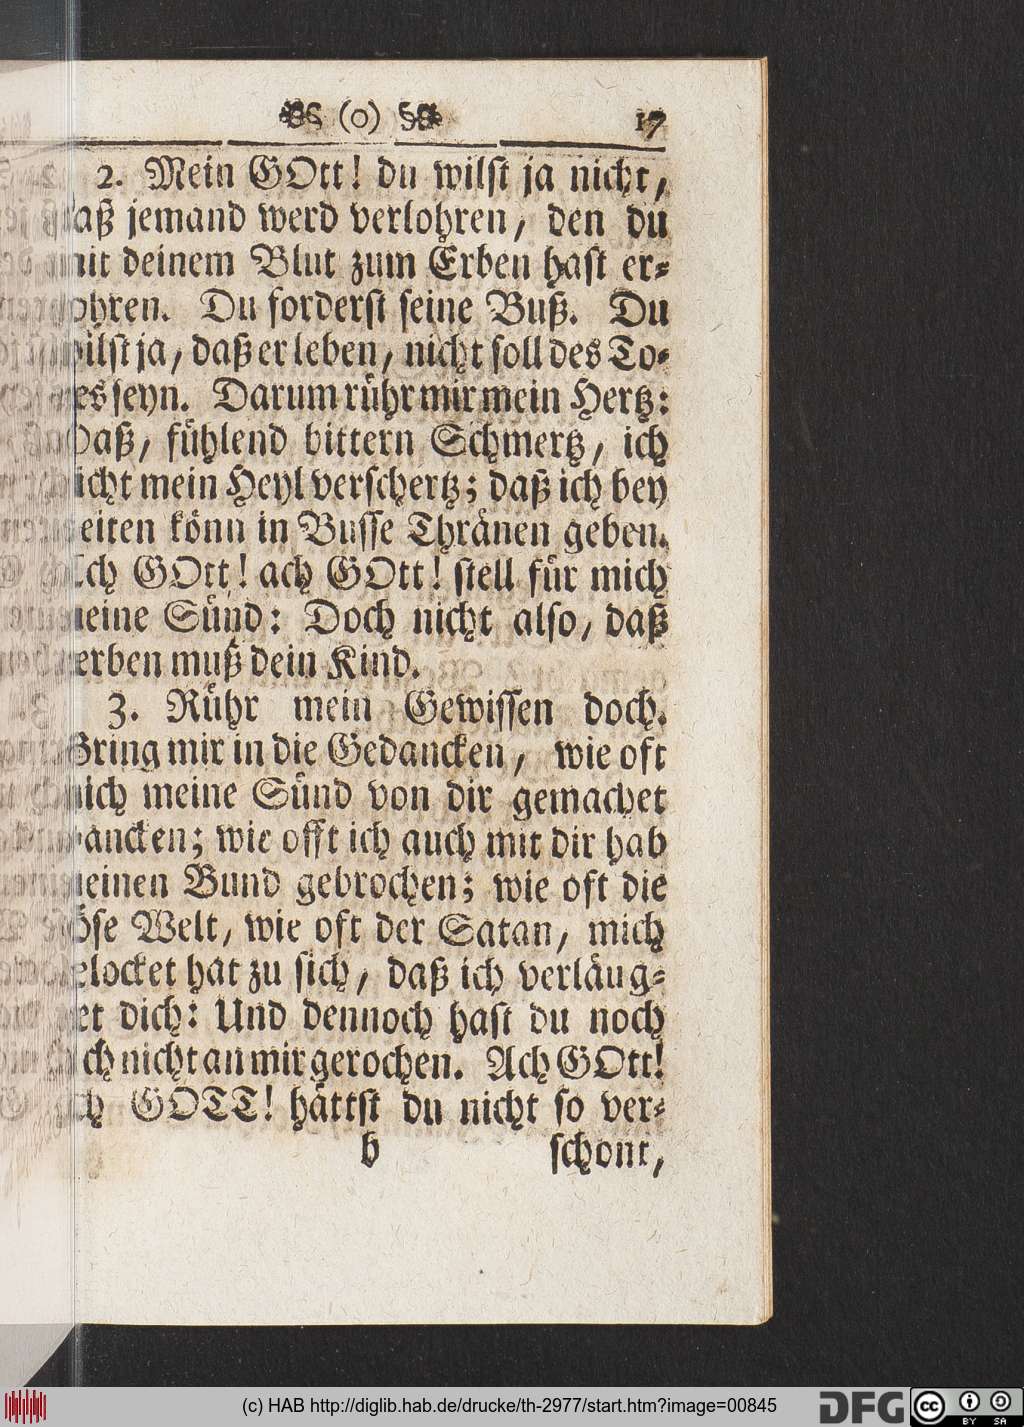 (0) 17
2. Mein GOtt! du wilst ja nicht,
daß jemand werd verlohren, den du
mit deinem Blut zum Erben hast er-
kohren. Du forderst seine Buß. Du
wilst ja, daß er leben, nicht soll des To-
des seyn. Darum rühr mir mein Hertz:
Daß, fühlend bittern Schmertz, ich
nicht mein Heyl verschertz; daß ich bey
zeiten könn in Busse Thränen geben.
Ach GOtt! ach GOtt! stell für mich
meine Sünd: Doch nicht also, daß
sterben muß dein Kind.
3. Rühr mein Gewissen doch.
Bring mir in die Gedancken, wie oft
mich meine Sünd von dir gemachet
wancken; wie offt ich auch mit dir hab
meinen Bund gebrochen; wie oft die
böse Welt, wie oft der Satan, mich
gelocket hat zu sich, daß ich verläug-
net dich: Und dennoch hast du noch
dich nicht an mir gerochen. Ach GOtt!
ach GOTT! hättst du nicht so ver-
b schont,
(c) HAB http://diglib.hab.de/drucke/th-2977/start.htm?image=00845
DFG
cc BY SA